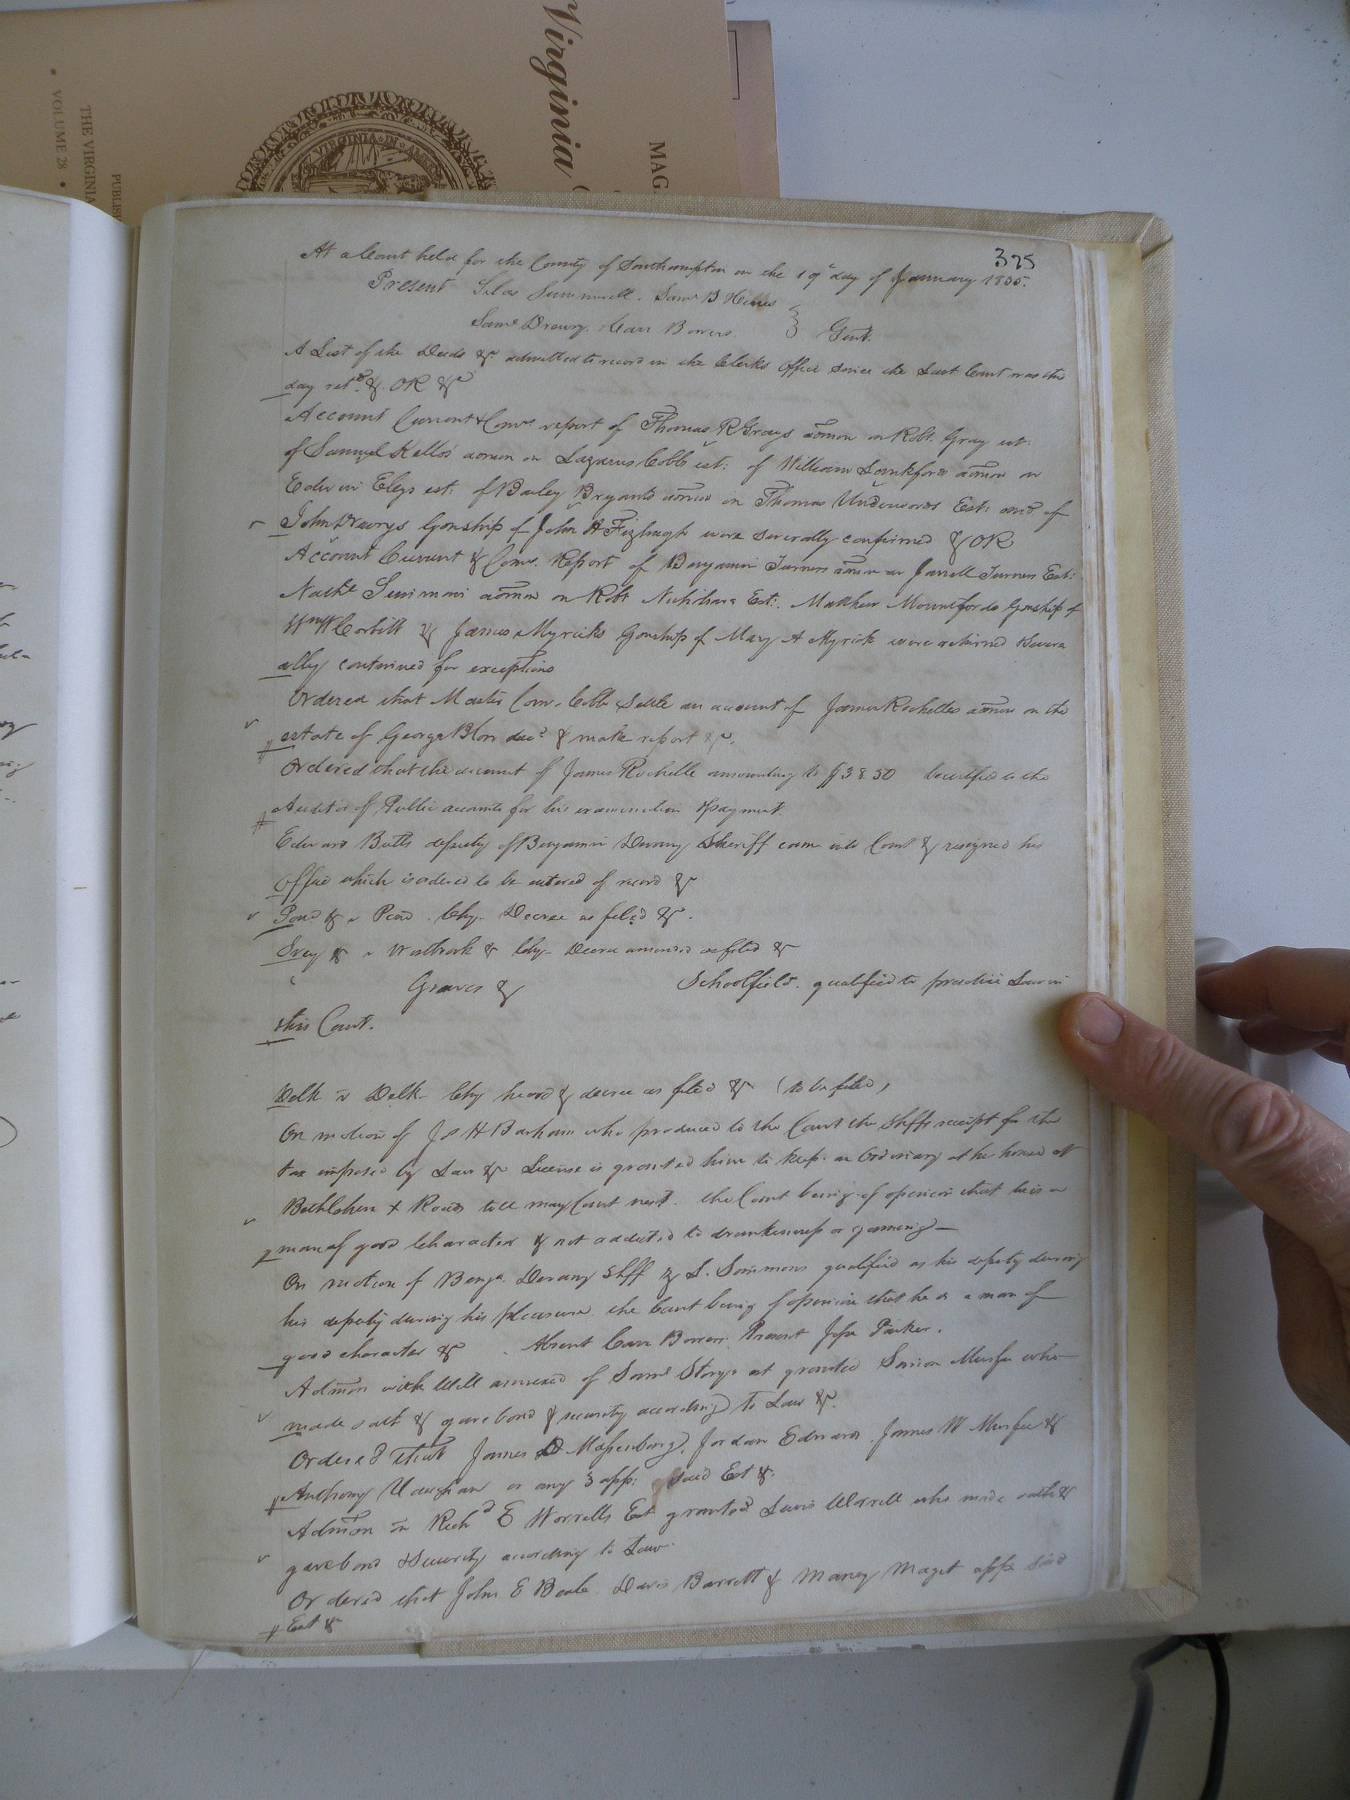 Virginia
MAG
THE VIRGINIA
PUBLIS
VOLUME 28
VIRGINIA IN AMER
325
At a Court held for the County of Southampton on the 19th day of January 1835.
Present Silas Summerell. Saml B Hines
Saml Drewry. Carr Bowers. Gent.
A List of the Deeds &c admitted to record in the Clerks Office since the Last Court was this
day retd. &. OR &c
Account Current & Comrs report of Thomas R Grays admon on Robt. Gray est:
of Samuel Kellos admon on Lazarus Cobbs est: of William Lankfords admon on
Edwin Eleys est: of Bailey Bryants admon on Thomas Underwoods Est: and of
John Drewrys Gonship of John H Fizhugh were severally confirmed & OR
Account Current & Comr. Report of Benjamin Turners admon on Jarrell Turners Est:
Nathl Simmons admon on Robt Est: Matthew Mountfords Gonship of
Wm W Corbitt & James Myricks Gonship of Mary A Myrick were returned Severa
ally continued for exceptions
Ordered that Master Comr. Cobb Settle an account of James Rochelles admon on the
estate of George Blow decd & make report &c.
Ordered that the account of James Rochelle amounting to $38.50 be certified to the
Auditor of Public accounts for his examination & payment.
Edward Butts deputy of Benjamin Devany Sheriff came into Court & resigned his
Office which is ordered to be entered of record &c
&c v Chy. Decree as filed &c.
Ivey & v Westbrook & Chy. Decree amended as filed &c
Graves & Schoolfield. qualified to practice Law in
this Court.
Delk v Delk Chy heard & decree as filed &c (to be filed)
On motion of Jos H Barham who produced to the Court the Shffs receipt for the
tax imposed by Law &c License is granted him to keep an Ordinary at his house at
Bethlehem X Roads till May Court next. the Court being of opinion that he is a
man of good Character & not addicted to drunkenness or gaming—
On motion of Benja. Devany Shff & S. Sammons qualified as his deputy during
his deputy during his pleasure the Court being of opinion that he is a man of
good character &c. Absent Carr Bowers. Present Jos Parker.
Admon with Will annexed of Saml Storys est granted Simon Murfee who
made oath & gave bond & security according to Law &c.
Ordered that James D Massenburg, Jordan Edwards. James W Murfee &
Anthony Vaughan or any 3 app: said Est &c.
Admon on Richd E Worrells Est granted Lewis Worrell who made oath &
gave bond & Security according to Law.
Ordered that John E Beale. Davis Barrett & Maney Maget appr said
Est &c